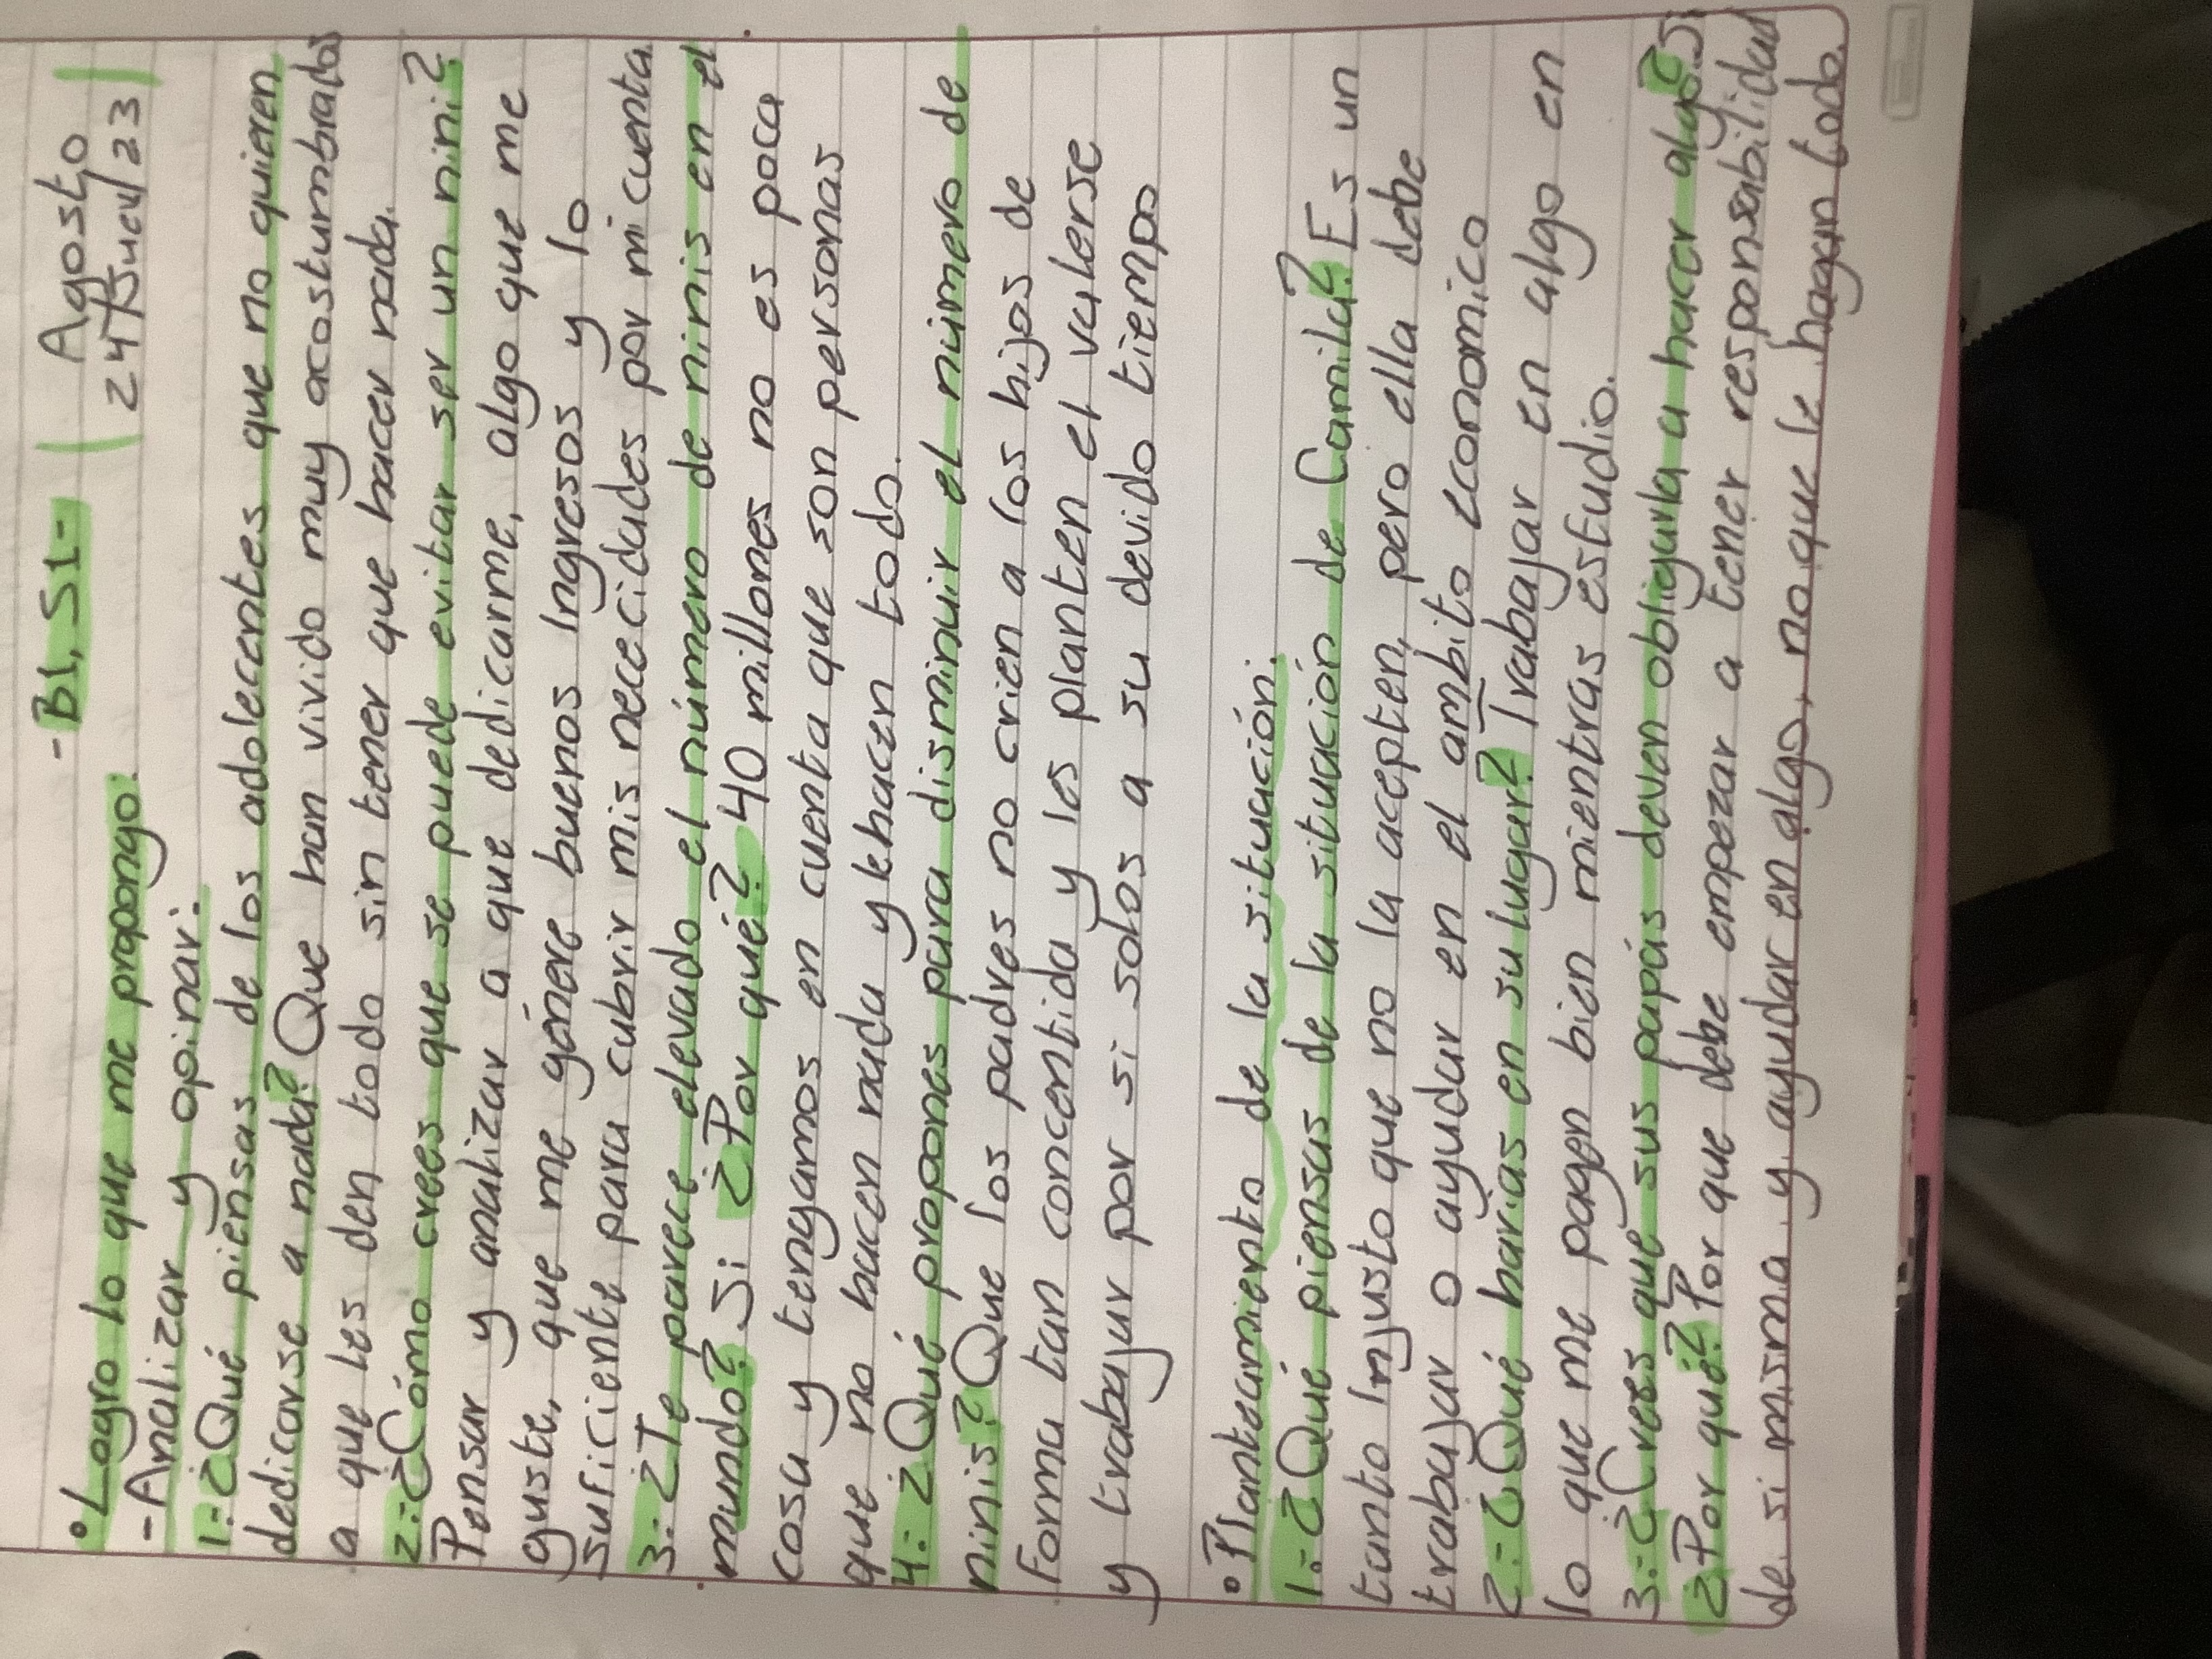 -B1, S1-
Agosto
| 24/Juev/23 |
°Logro lo que me propongo.
-Analizar y opinar:
1.-¿Qué piensas de los adolecentes que no quieren
dedicarse a nada? Que han vivido muy acosturmbrados
a que les den todo sin tener que hacer nada.
2.-¿Cómo crees que se puede evitar ser un nini?
Pensar y analizar a que dedicarme, algo que me
guste, que me génere buenos Ingresos y lo
suficiente para cubrir mis nececidades por mi cuenta
3.-¿Te parece elevado el número de ninis en el
mundo? Si ¿Por qué? 40 millones no es poca
cosa y tengamos en cuenta que son personas
que no hacen nada y lehacen todo.
4.- ¿Qué propones para disminuir el número de
ninis? Que los padres no crien a los hijos de
forma tan concentida y les planten el valerse
y trabajar por si solos a su devido tiempo
°Planteamiento de la situación:
1.-¿Qué piensas de la situación de Camila? Es un
tanto Injusto que no la acepten, pero ella debe
trabajar o ayudar en el ambito economico
2.-¿Qué harias en su lugar? Trabajar en algo en
lo que me pagen bien mientras estudio.
3.-¿Crees que sus papás deven obligarla a hacer algo? Si
¿Por qué? Por que debe empezar a tener responsabilidad
de si misma y ayudar en algo, no que le hagan todo.